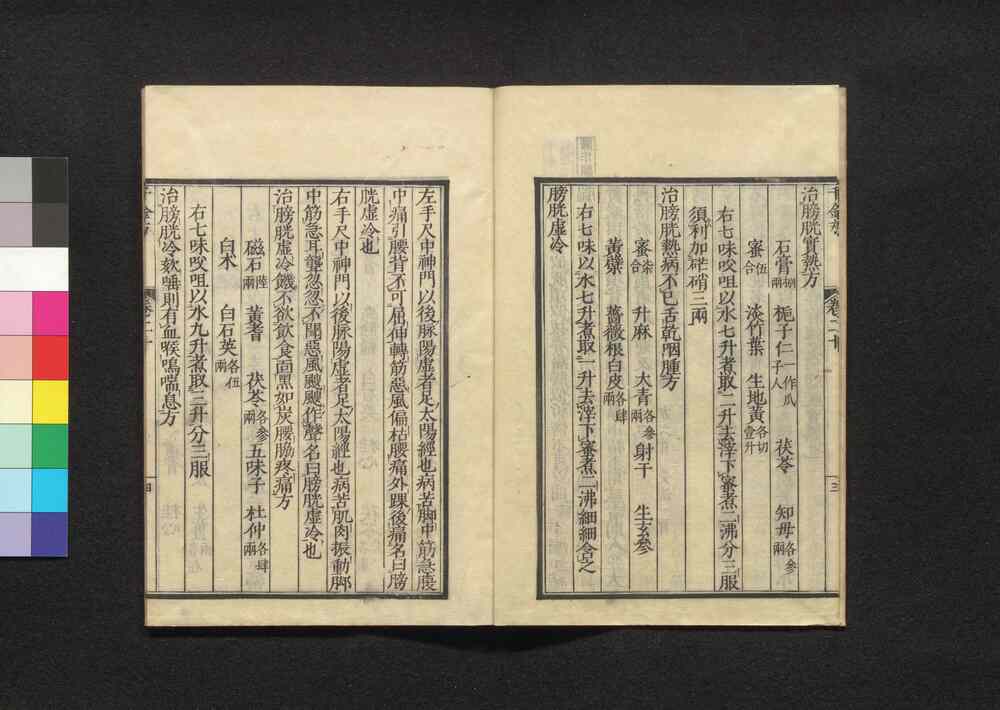 治膀胱實熱方
石膏捌兩 梔子仁一作瓜子人 茯苓 知母各參兩
蜜伍合 淡竹葉 生地黃各切壹升
右七味㕮咀以水七升煮取二升去滓下蜜煮二沸分三服
須利加芒硝三兩
治膀胱熱病不已舌乾咽腫方
蜜柒合 升麻 大青各參兩 射干 生玄參
黃蘗 薔薇根白皮各肆兩
右七味以水七升煮取一升去滓下蜜煮二沸細細含之
膀胱虛冷
卷二十
三
左手尺中神門以後脉陽虛者足太陽經也病苦腳中筋急腹
中痛引腰背不可屈伸轉筋惡風偏枯腰痛外踝後痛名曰膀
胱虛冷也
右手尺中神門以後脉陽虛者足太陽經也病苦肌肉振動腳
中筋急耳聾忽忽不聞惡風颼颼作聲名曰膀胱虛冷也
治膀胱虛冷饑不欲飲食面黑如炭腰脇疼痛方
磁石陸兩 黃耆 茯苓各參兩 五味子 杜仲各肆兩
白朮 白石英各伍兩
右七味㕮咀以水九升煮取三升分三服
治膀胱冷欬唾則有血喉鳴喘息方
卷二十
四